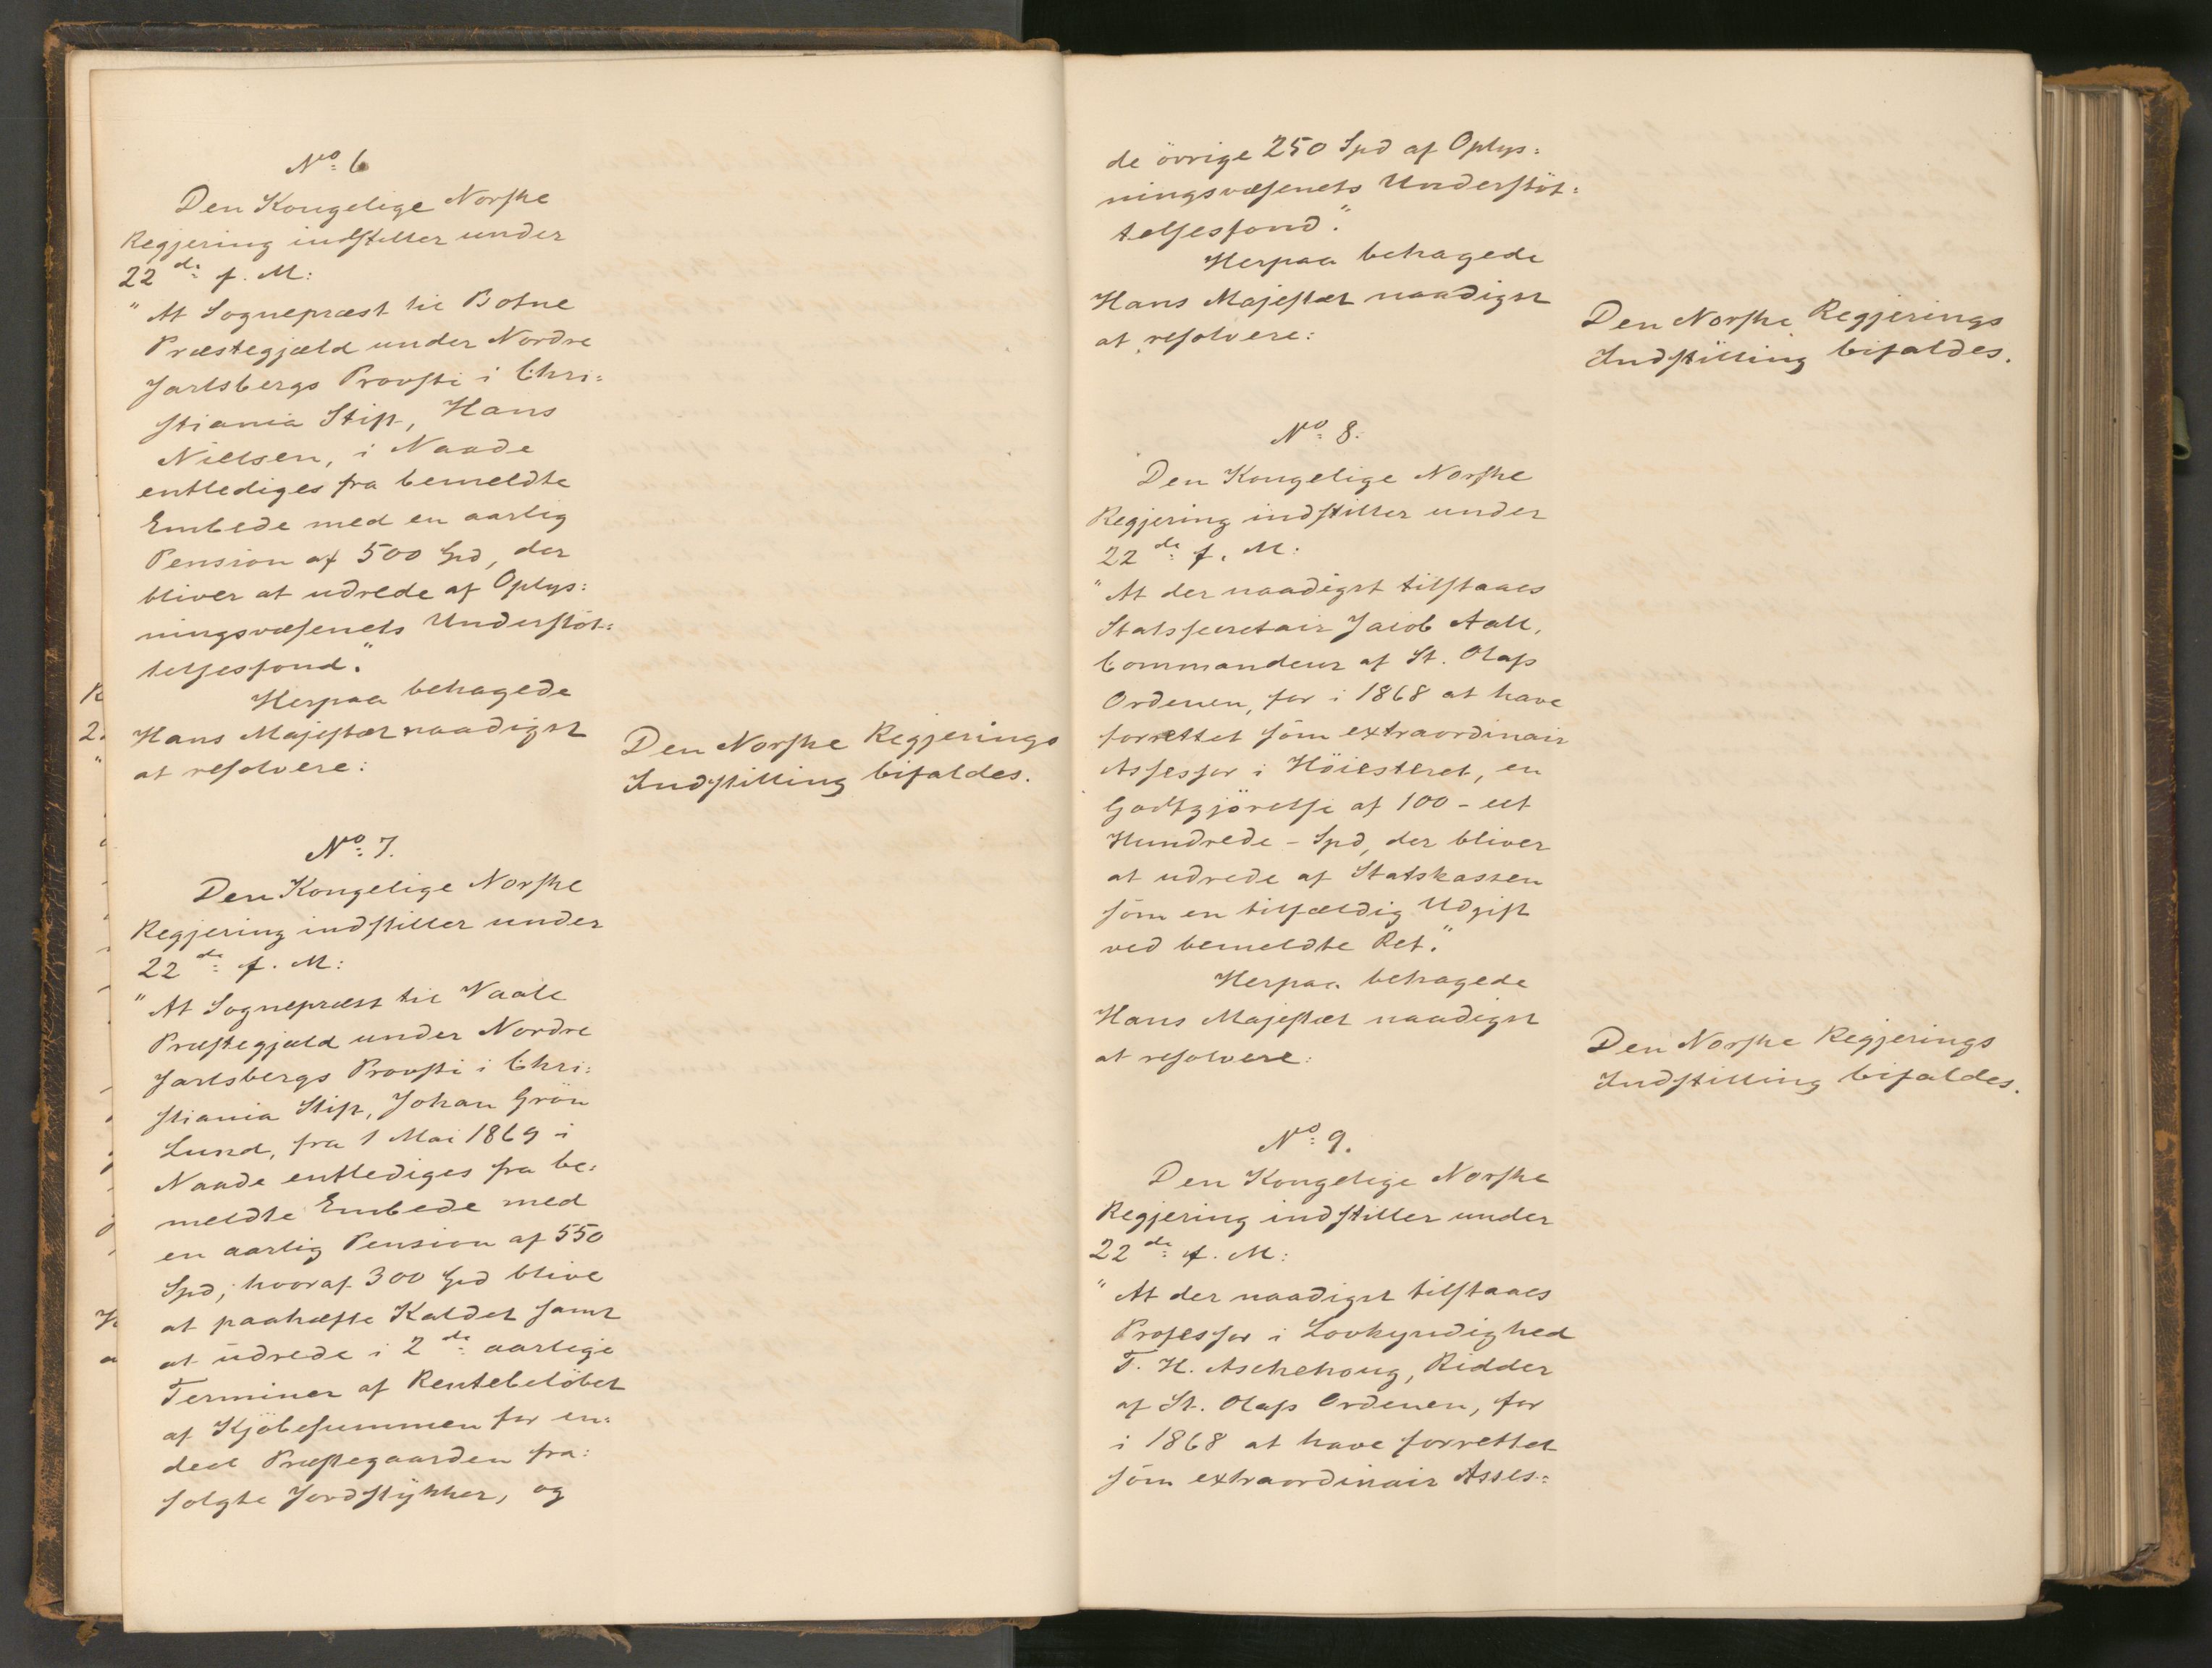 No: 6
Den Kongelige Norske
Regjering indstiller under
22de f. M:
"At Sognepræst til Botne
Præstegjæld under Nordre
Jarlsbergs Provsti i Chri:
stiania Stift, Hans
Nielsen, i Naade
entlediges fra bemeldte
Embede med en aarlig
Pension af 500 Spd, der
bliver at udrede af Oplys:
ningsvæsenets Understöt:
telsesfond."
Herpaa behagede
Hans Majestæt naadigst
at resolvere:
Den Norske Regjerings
Indstilling bifaldes.
No: 7.
Den Kongelige Norske
Regjering indstiller under
22de f. M:
"At Sognepræst til Vaale
Præstegjæld under Nordre
Jarlsbergs Provsti i Chri:
stiania Stift, Johan Grön
Lund, fra 1 Mai 1869 i
Naade entlediges fra be:
meldte Embede med
en aarlig Pension af 550
Spd; hvoraf 300 Spd blive
at paahæfte Kaldet samt
at udrede i 2de aarlige
Terminer af Rentebelöbet
af Kjöbesummen for en:
deel Præstegaarden fra:
solgte Jordstykker, og
de övrige 250 Spd af Oplys:
ningsvæsenets Understöt:
telsesfond."
Herpaa behagede
Hans Majestæt naadigst
at resolvere:
Den Norske Regjerings
Indstilling bifaldes.
No: 8.
Den Kongelige Norske
Regjering indstiller under
22de f. M:
"At der naadigst tilstaaes
Statssecretair Jacob Aall,
Commandeur af St. Olafs
Ordenen, for i 1868 at have
forrettet som extraordinair
Assessor i Höiesteret, en
Godtgjörelse af 100 - eet
Hundrede - Spd, der bliver
at udrede af Statskassen
som en tilfældig Udgift
ved bemeldte Ret."
Herpaa behagede
Hans Majestæt naadigst
at resolvere:
Den Norske Regjerings
Indstilling bifaldes.
No: 9.
Den Kongelige Norske
Regjering indstiller under
22de f. M:
"At der naadigst tilstaaes
Professor i Lovkyndighed
T. H. Aschehoug, Ridder
af St. Olafs Ordenen, for
i 1868 at have forrettet
som extraordinair Asses: